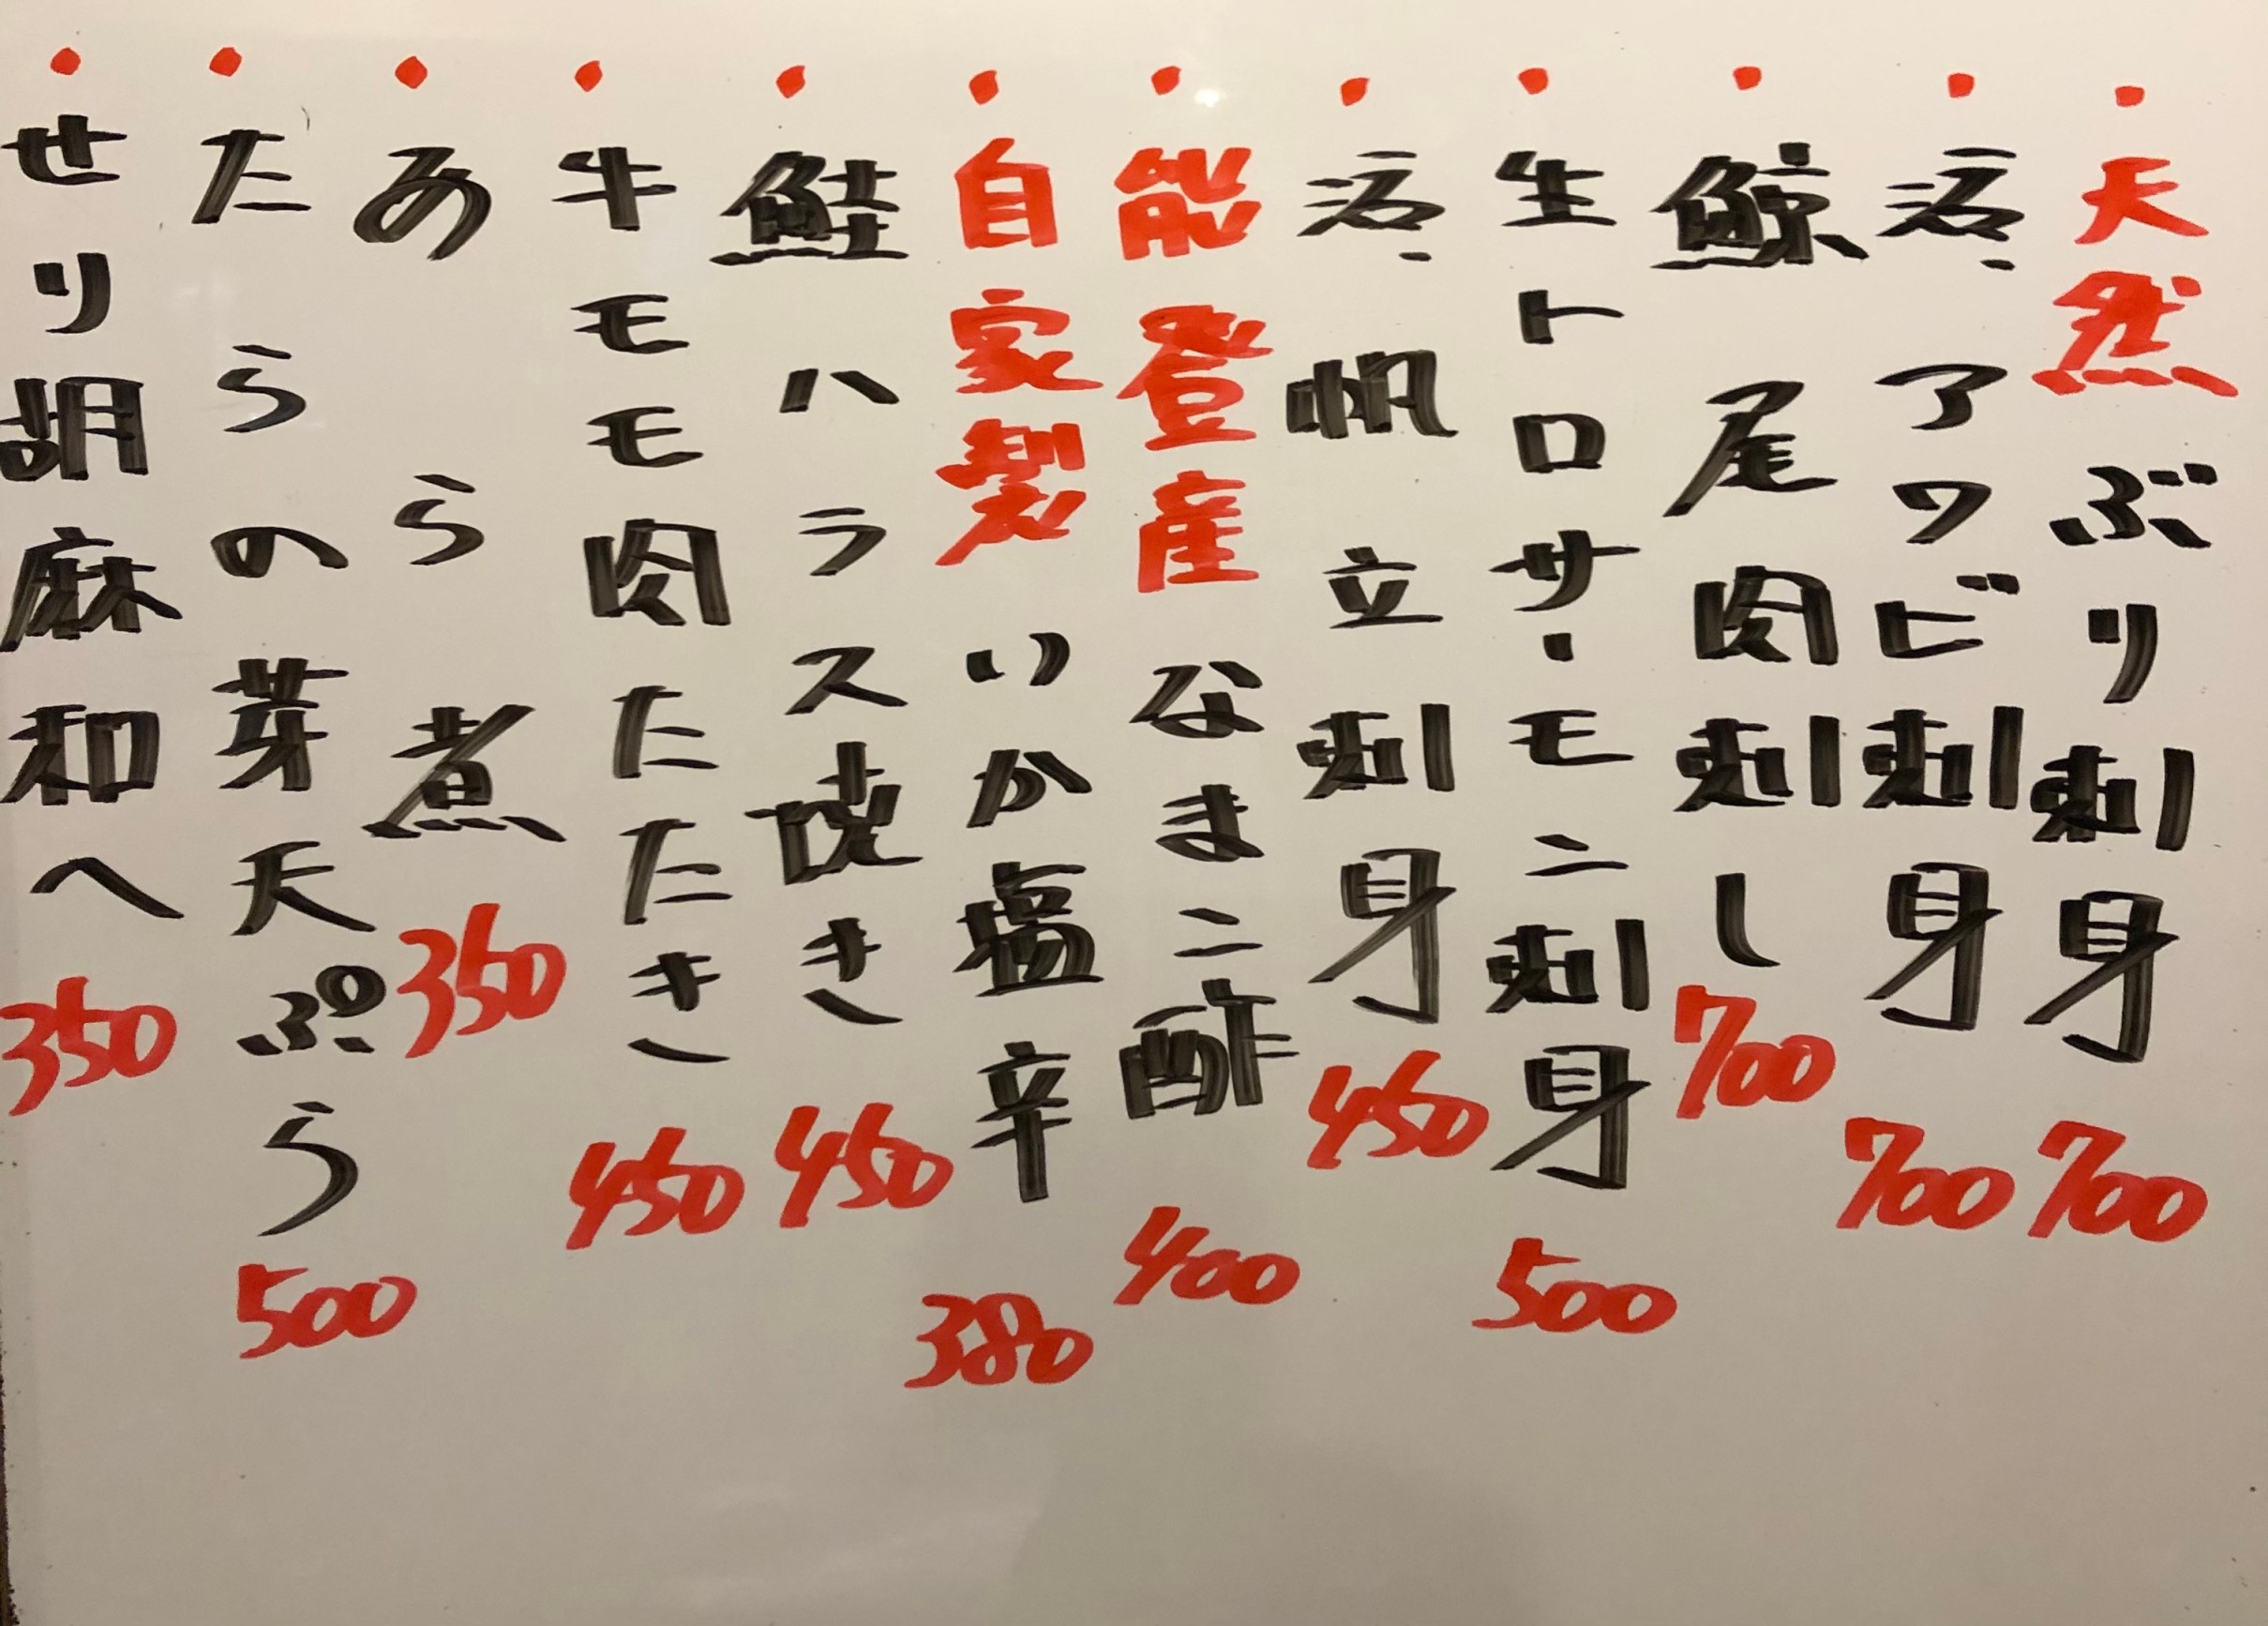 ・天然ぶり刺身 700
・活アワビ刺身 700
・鯨尾肉刺し 700
・生トロサーモン刺身 500
・活帆立刺身 450
・能登産なまこ酢 400
・自家製いか塩辛 380
・鮭ハラス焼き 450
・牛モモ肉たたき 450
・あら煮 350
・たらの芽天ぷら 500
・せり胡麻和へ 350